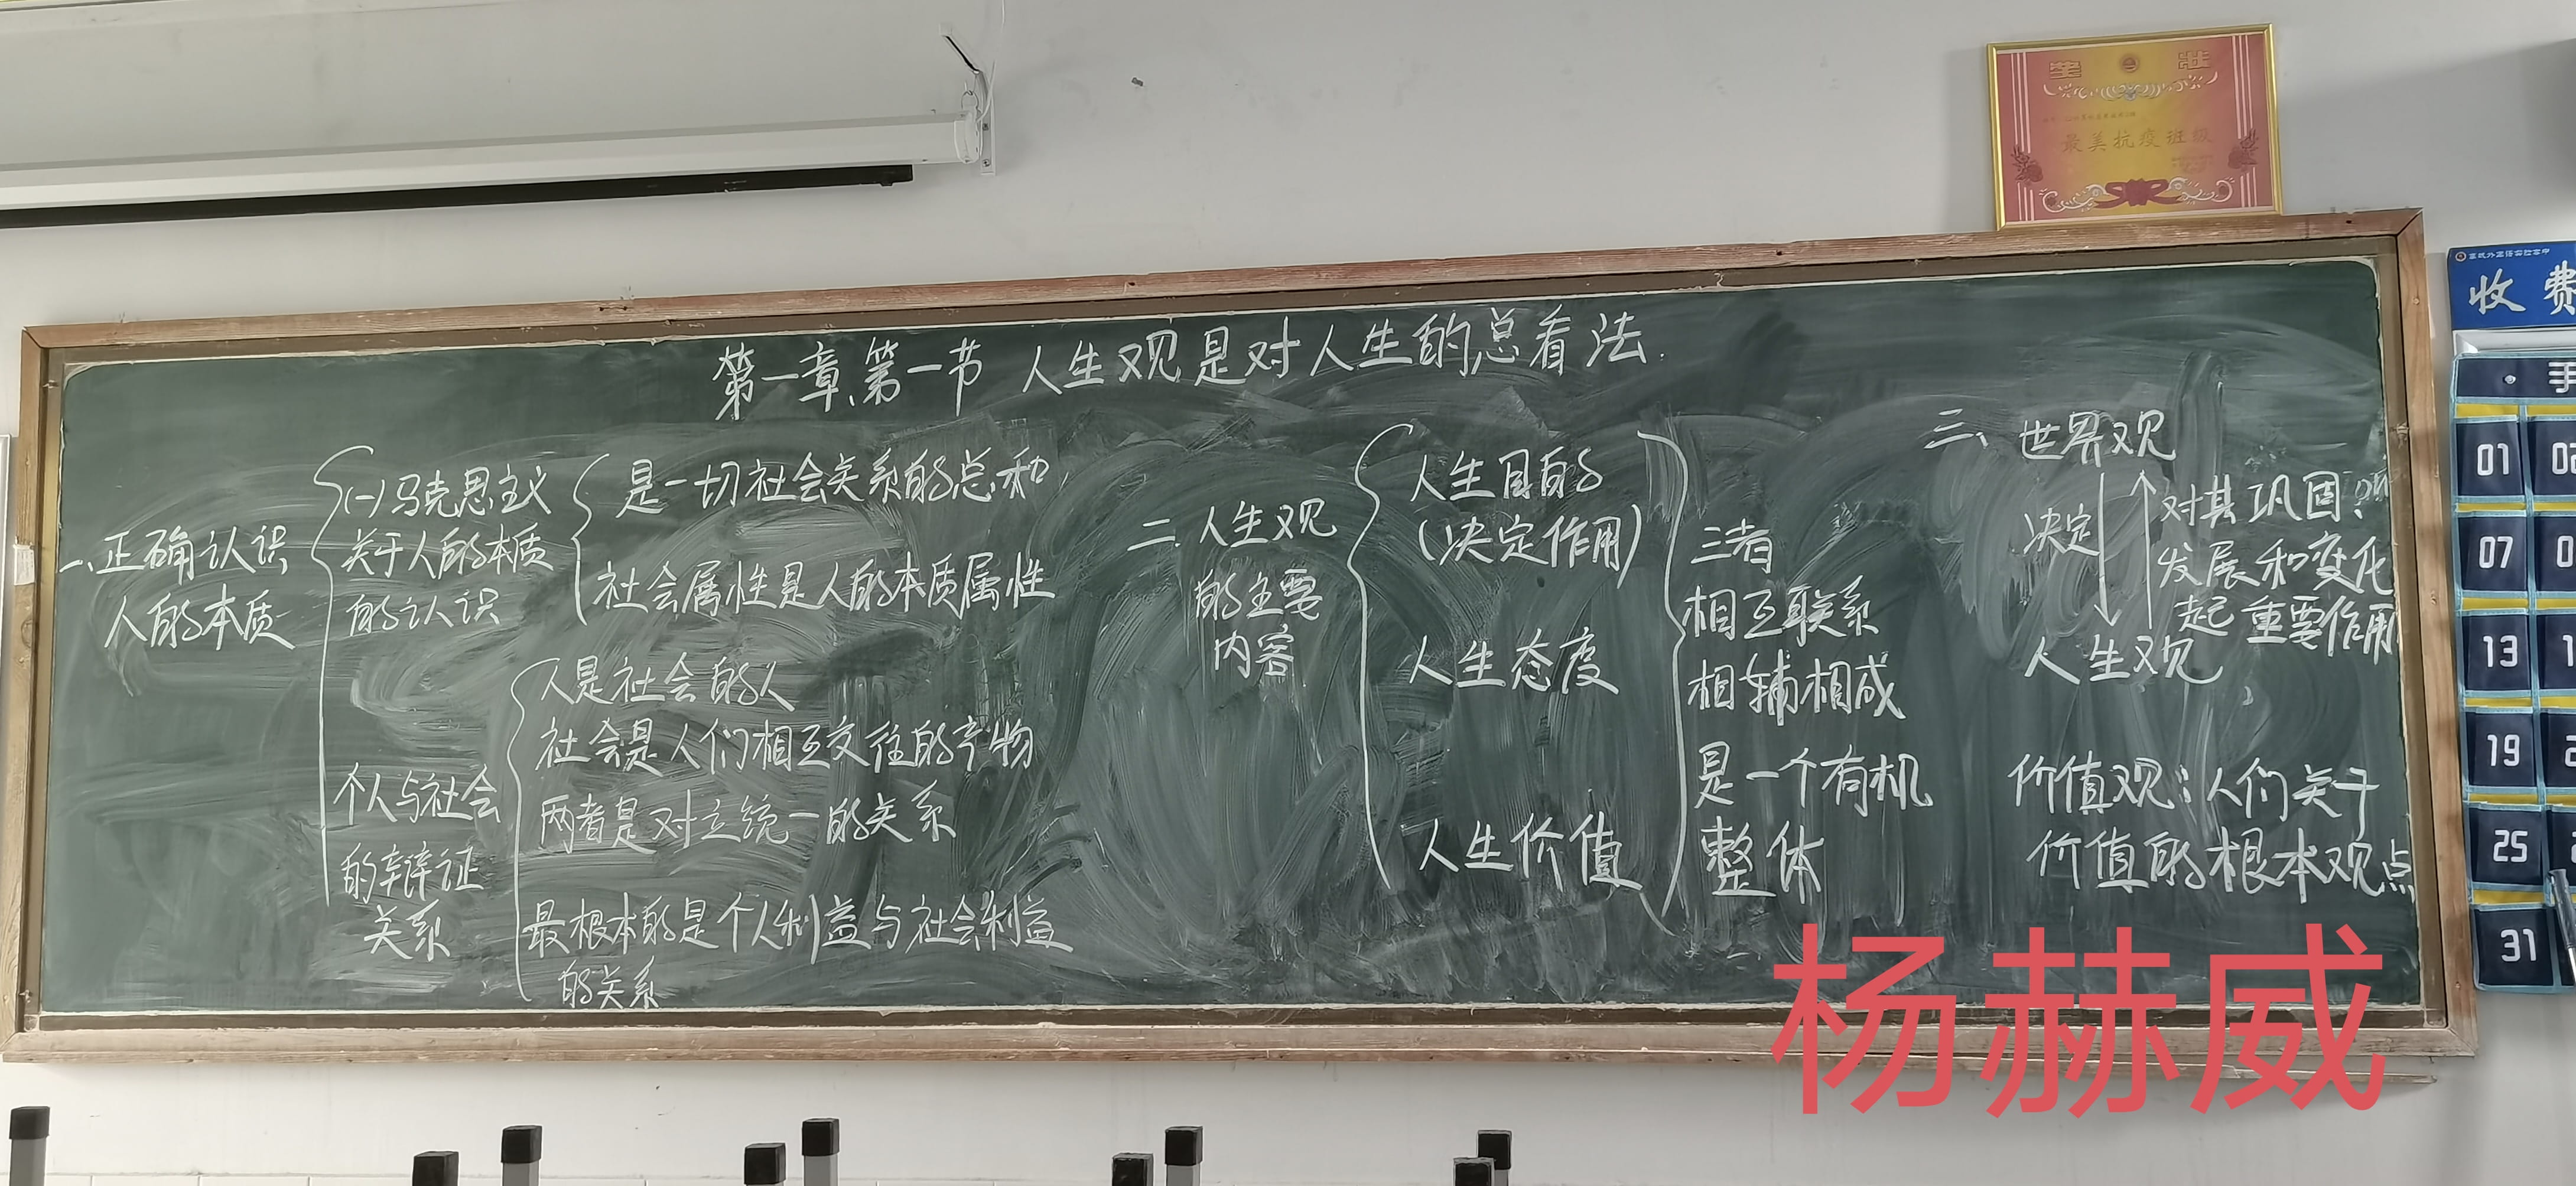 奖 状
最美抗疫班级
收费
手
01 02
07 0
13 1
19 2
25 2
31
第一章、第一节 人生观是对人生的总看法.
一、正确认识
人的本质
(一)马克思主义
关于人的本质
的认识
是一切社会关系的总和
社会属性是人的本质属性
个人与社会
的辩证
关系
人是社会的人
社会是人们相互交往的产物
两者是对立统一的关系
最根本的是个人利益与社会利益
的关系
二.人生观
的主要
内容
人生目的
(决定作用)
人生态度
人生价值
三者
相互联系
相辅相成
是一个有机
整体
三、世界观
决定
对其巩固
发展和变化
起重要作用
人生观
价值观:人们关于
价值的根本观点
杨赫威